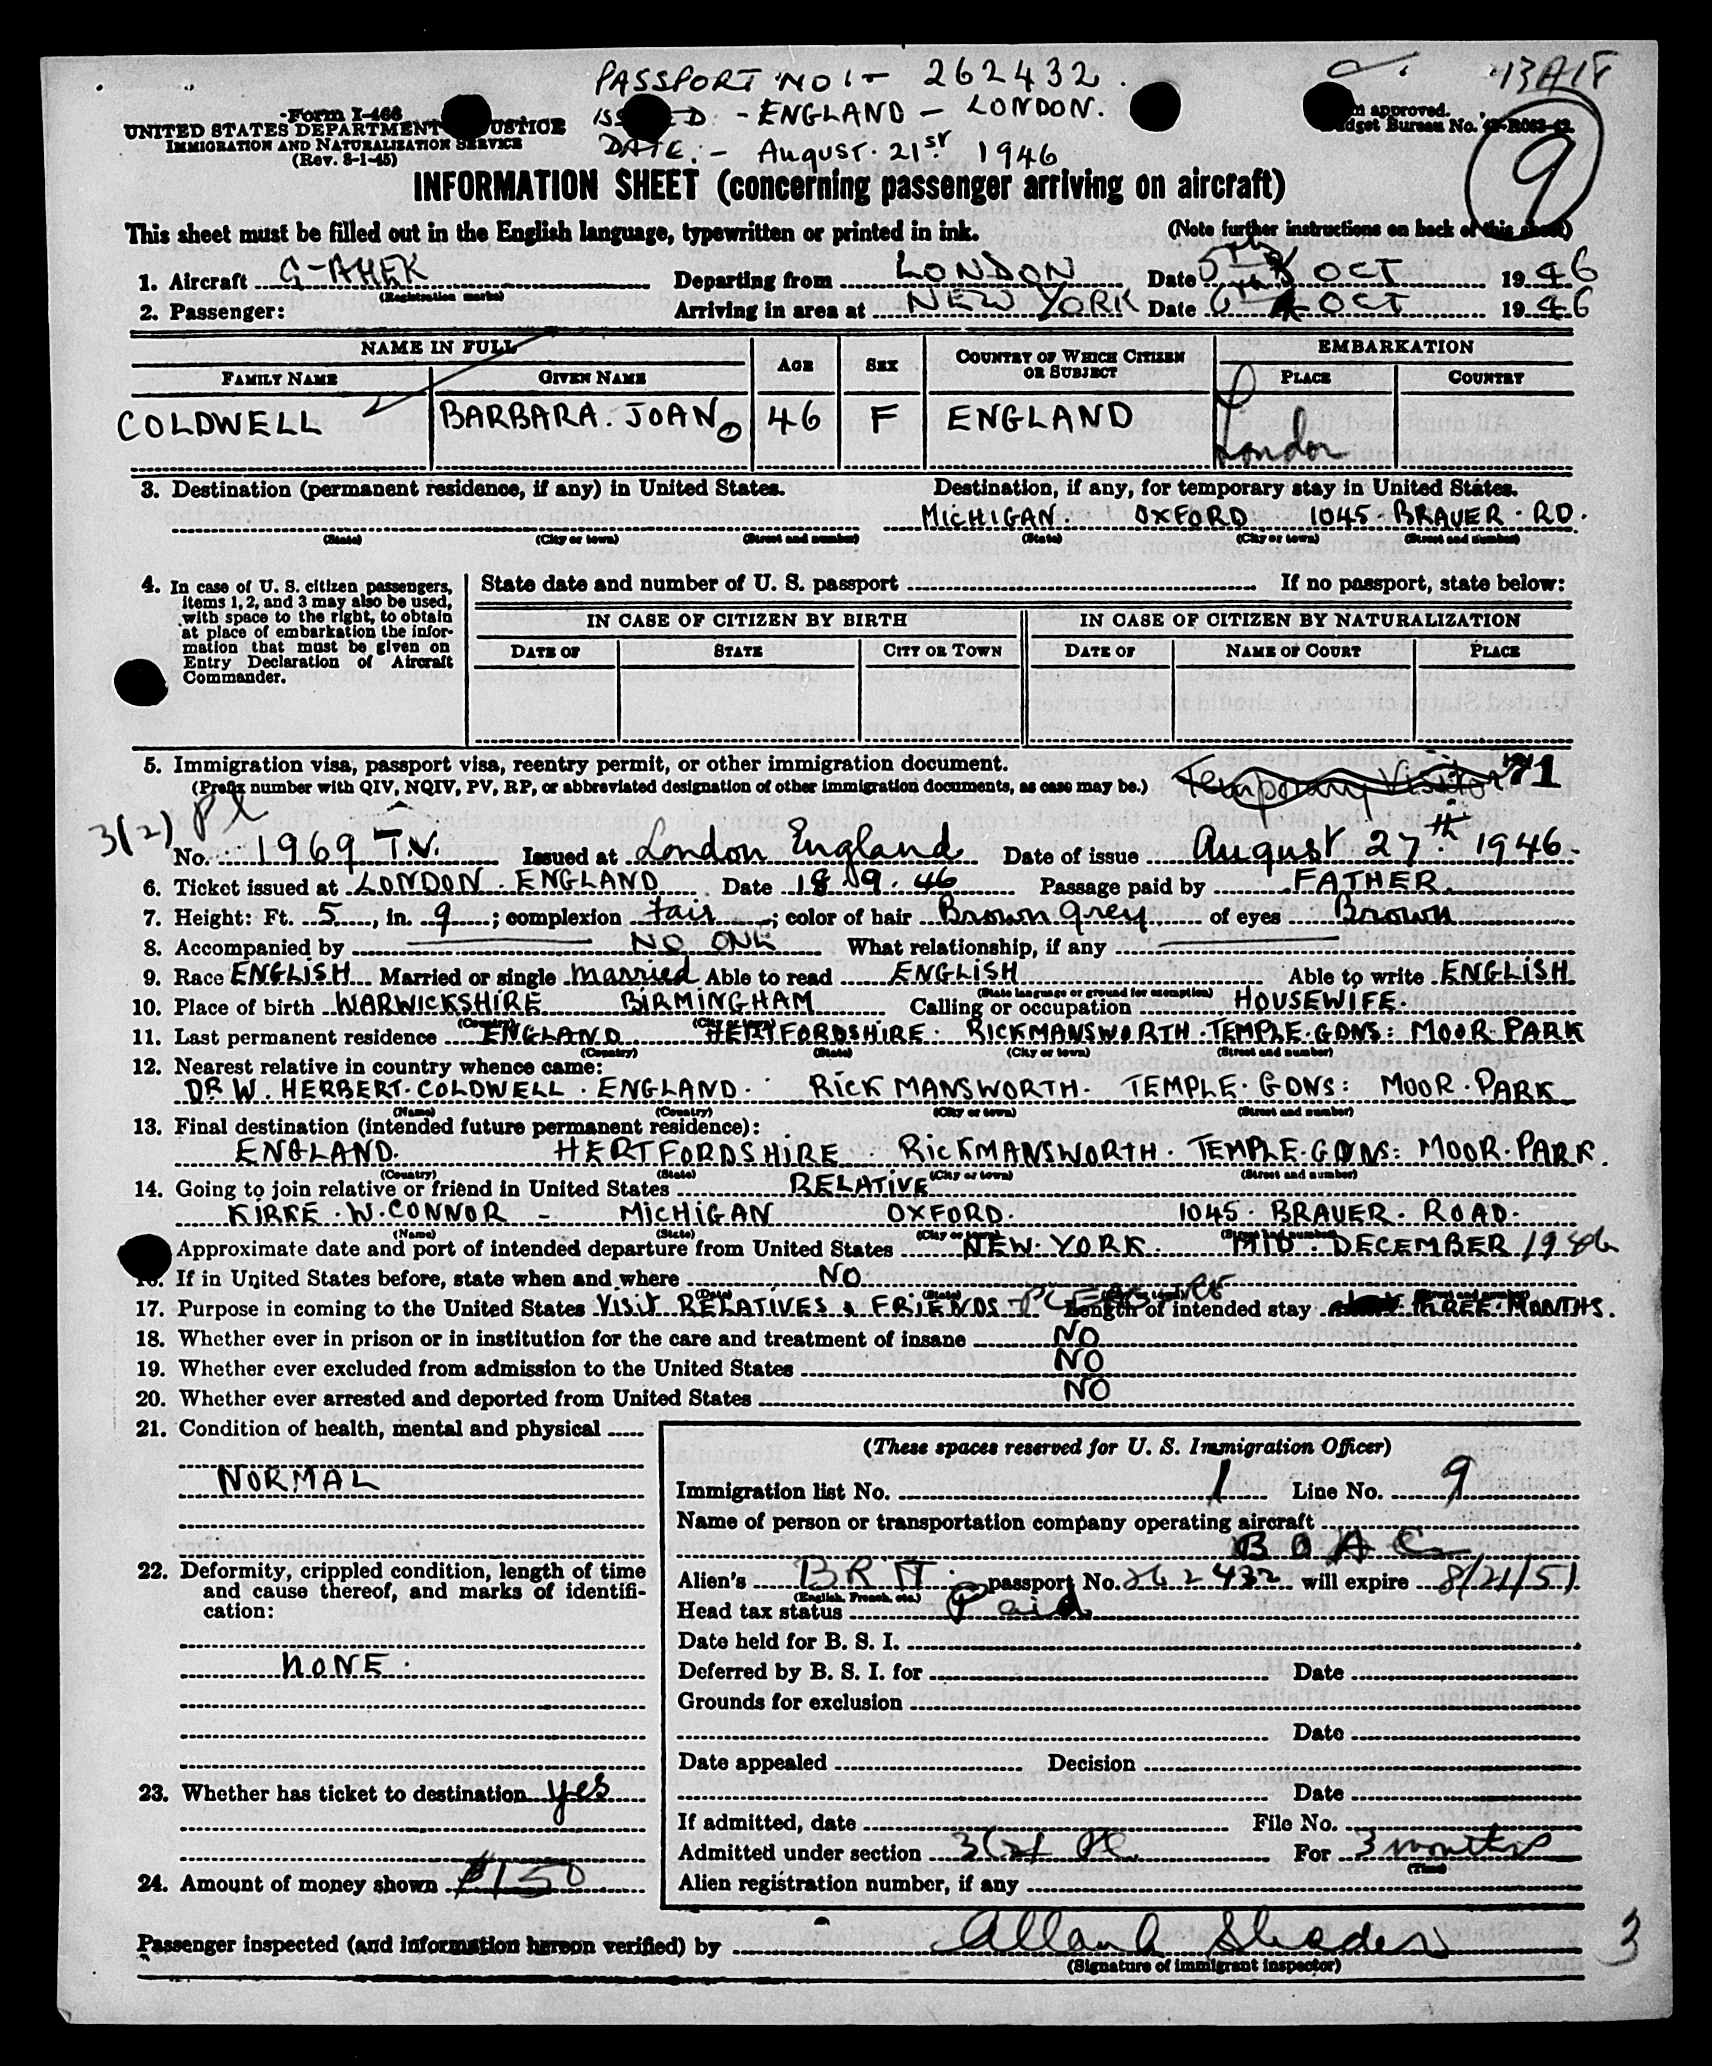 PASSPORT NO:- 262432.
13A18
Form I-466
UNITED STATES DEPARTMENT JUSTICE
ISSUED - ENGLAND - LONDON.
approved.
Budget Bureau No.
IMMIGRATION AND NATURALIZATION SERVICE
(Rev. 8-1-45)
DATE:- August. 21st 1946
9
INFORMATION SHEET (concerning passenger arriving on aircraft)
This sheet must be filled out in the English language, typewritten or printed in ink. (Note further instructions on back of this sheet)
1. Aircraft G-AHEK Departing from LONDON Date 5th OCT 1946
(Registration marks)
2. Passenger: Arriving in area at NEW YORK Date 6th OCT 1946
NAME IN FULL AGE SEX COUNTRY OF WHICH CITIZEN OR SUBJECT EMBARKATION
FAMILY NAME GIVEN NAME PLACE COUNTRY
COLDWELL BARBARA. JOAN 46 F ENGLAND London
3. Destination (permanent residence, if any) in United States. Destination, if any, for temporary stay in United States.
MICHIGAN. OXFORD 1045 BRAUER. RD.
(State) (City or town) (Street and number) (State) (City or town) (Street and number)
4. In case of U. S. citizen passengers, items 1, 2, and 3 may also be used, with space to the right, to obtain at place of embarkation the information that must be given on Entry Declaration of Aircraft Commander.
State date and number of U. S. passport If no passport, state below:
IN CASE OF CITIZEN BY BIRTH IN CASE OF CITIZEN BY NATURALIZATION
DATE OF STATE CITY OR TOWN DATE OF NAME OF COURT PLACE
5. Immigration visa, passport visa, reentry permit, or other immigration document.
(Prefix number with QIV, NQIV, PV, RP, or abbreviated designation of other immigration documents, as case may be.) Temporary Visitor 71
3(2) Pl
No. 1969 T.V. Issued at London England Date of issue August 27th 1946.
6. Ticket issued at LONDON. ENGLAND Date 18.9.46 Passage paid by FATHER.
7. Height: Ft. 5, in. 9; complexion fair; color of hair Brown grey of eyes Brown
8. Accompanied by NO ONE What relationship, if any
9. Race ENGLISH Married or single married Able to read ENGLISH Able to write ENGLISH
(State language or ground for exemption)
10. Place of birth WARWICKSHIRE BIRMINGHAM Calling or occupation HOUSEWIFE
(Country) (City or town)
11. Last permanent residence ENGLAND HERTFORDSHIRE. RICKMANSWORTH. TEMPLE. GDNS: MOOR PARK
(Country) (State) (City or town) (Street and number)
12. Nearest relative in country whence came:
DR W. HERBERT. COLDWELL. ENGLAND. RICKMANSWORTH. TEMPLE. GDNS: MOOR. PARK
(Name) (Country) (City or town) (Street and number)
13. Final destination (intended future permanent residence):
ENGLAND. HERTFORDSHIRE RICKMANSWORTH. TEMPLE. GDNS: MOOR. PARK.
(Country) (State) (City or town) (Street and number)
14. Going to join relative or friend in United States RELATIVE
KIRKE. W. CONNOR - MICHIGAN OXFORD. 1045 BRAUER. ROAD.
(Name) (State) (City or town) (Street and number)
Approximate date and port of intended departure from United States NEW. YORK. MID. DECEMBER 1946
16. If in United States before, state when and where NO
(Date) (State)
17. Purpose in coming to the United States VISIT RELATIVES & FRIENDS - PLEASURE Length of intended stay THREE. MONTHS.
18. Whether ever in prison or in institution for the care and treatment of insane NO
19. Whether ever excluded from admission to the United States NO
20. Whether ever arrested and deported from United States NO
21. Condition of health, mental and physical
NORMAL
22. Deformity, crippled condition, length of time and cause thereof, and marks of identification:
NONE.
23. Whether has ticket to destination yes
24. Amount of money shown $150
(These spaces reserved for U. S. Immigration Officer)
Immigration list No. 1 Line No. 9
Name of person or transportation company operating aircraft
B O A C
Alien's BRIT. passport No. 262432 will expire 8/21/51.
(English, French, etc.)
Head tax status Paid
Date held for B. S. I.
Deferred by B. S. I. for Date
Grounds for exclusion
Date
Date appealed Decision
Date
If admitted, date File No.
Admitted under section 3(2) Pl. For 3 months
(Time)
Alien registration number, if any
Passenger inspected (and information hereon verified) by Allan A
(Signature of immigrant inspector)
3